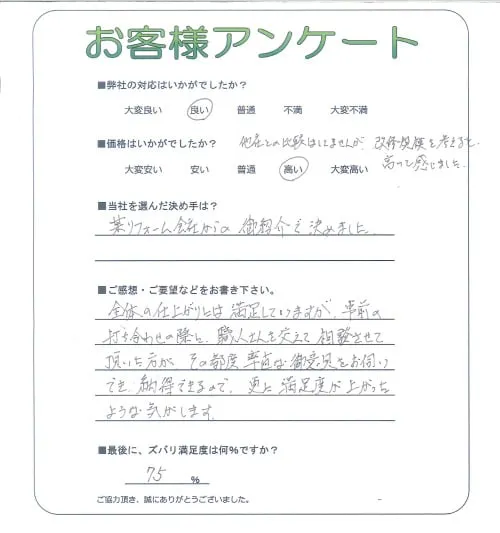 お客様アンケート
■弊社の対応はいかがでしたか？
大変良い 良い 普通 不満 大変不満
■価格はいかがでしたか？ 他社との比較はしてませんが、改修規模を考えると
高いと感じました。
大変安い 安い 普通 高い 大変高い
■当社を選んだ決め手は？
某リフォーム会社からの御紹介で決めました。
■ご感想・ご要望などをお書き下さい。
全体の仕上がりには満足していますが、事前の
打ち合わせの際に、職人さんを交えて相談させて
頂いた方が、その都度率直な御意見をお伺い
でき、納得できるので、更に満足度が上がった
ような気がします。
■最後に、ズバリ満足度は何％ですか？
75 ％
ご協力頂き、誠にありがとうございました。